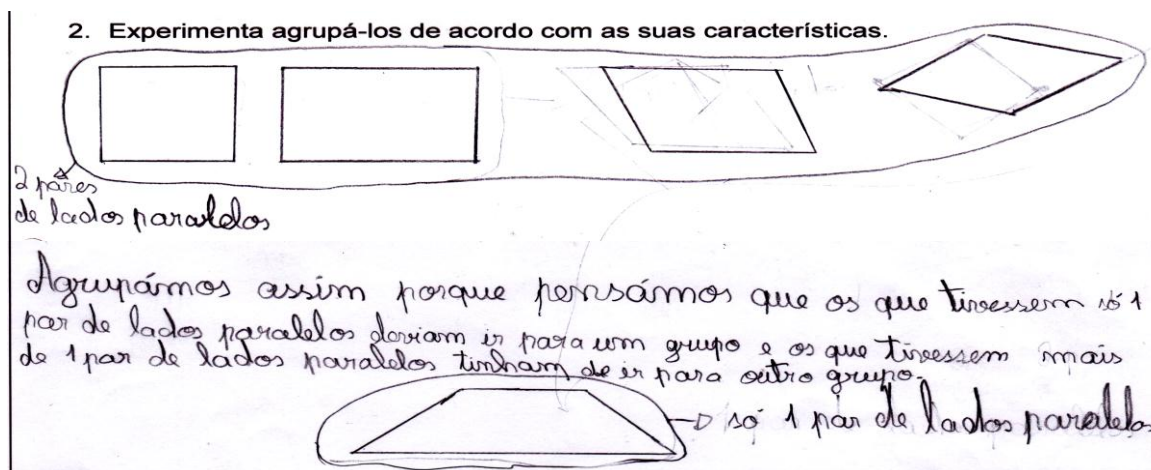 2. Experimenta agrupá-los de acordo com as suas características.
2 pares
de lados paralelos
Agrupámos assim porque pensámos que os que tivessem só 1
par de lados paralelos deviam ir para um grupo e os que tivessem mais
de 1 par de lados paralelos tinham de ir para outro grupo.
só 1 par de lados paralelos